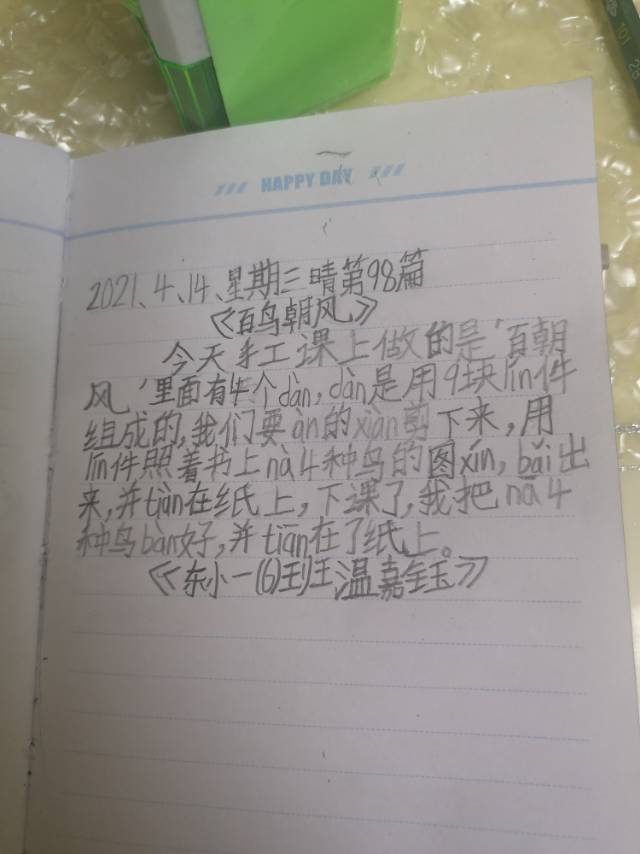 HAPPY DAY
2021、4、14、星期三 晴 第98篇
《百鸟朝风》
今天手工课上做的是'百朝
风,'里面有4个dàn,dàn是用9块lín件
组成的,我们要àn的xiàn剪下来,用
lín件照着书上nà4种鸟的图xín,bǎi出
来,并tiàn在纸上,下课了,我把nā4
种鸟bàn好,并tiān在了纸上。
《东小一(6)王温嘉玉》
101